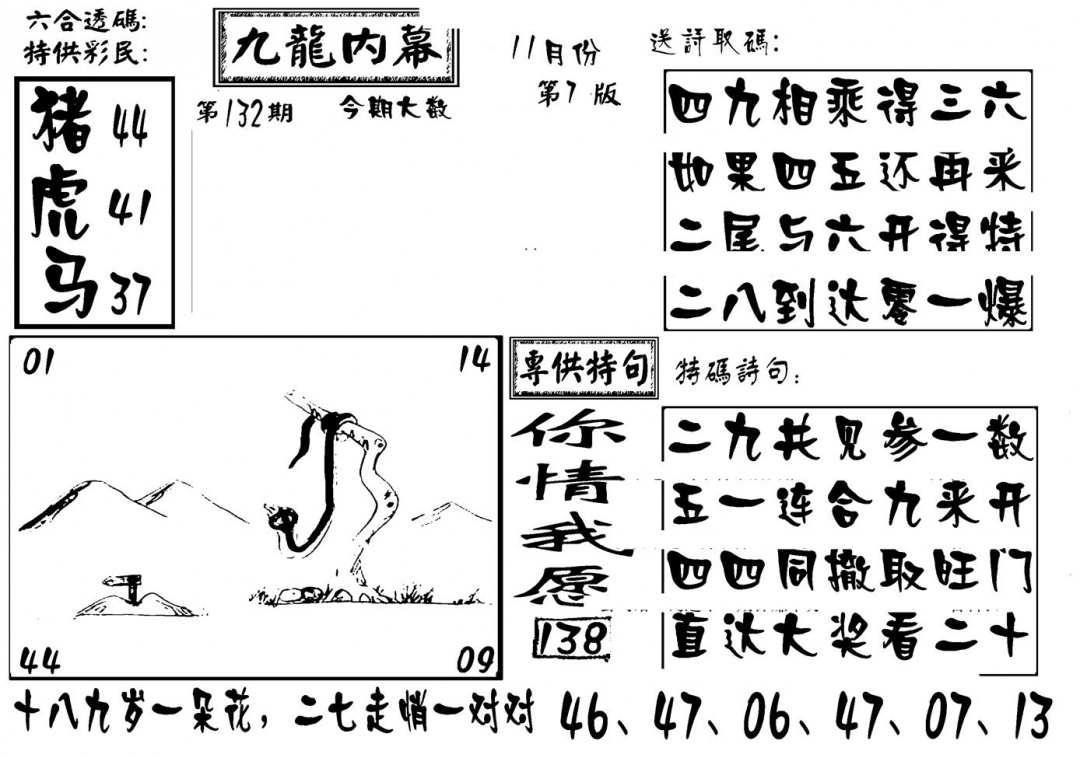 六合透碼:
特供彩民:
猪 44
虎 41
马 37
九龍内幕
第132期 今期大数
11月份
第7版
送詩取碼:
四九相乘得三六
如果四五还再来
二尾与六开得特
二八到达零一爆
01 14
44 09
専供特句
你情我愿
138
特碼詩句:
二九共见参一数
五一连合九来开
四四同撤取旺门
直达大奖看二十
十八九岁一朵花,二七走悄一对对 46、47、06、47、07、13